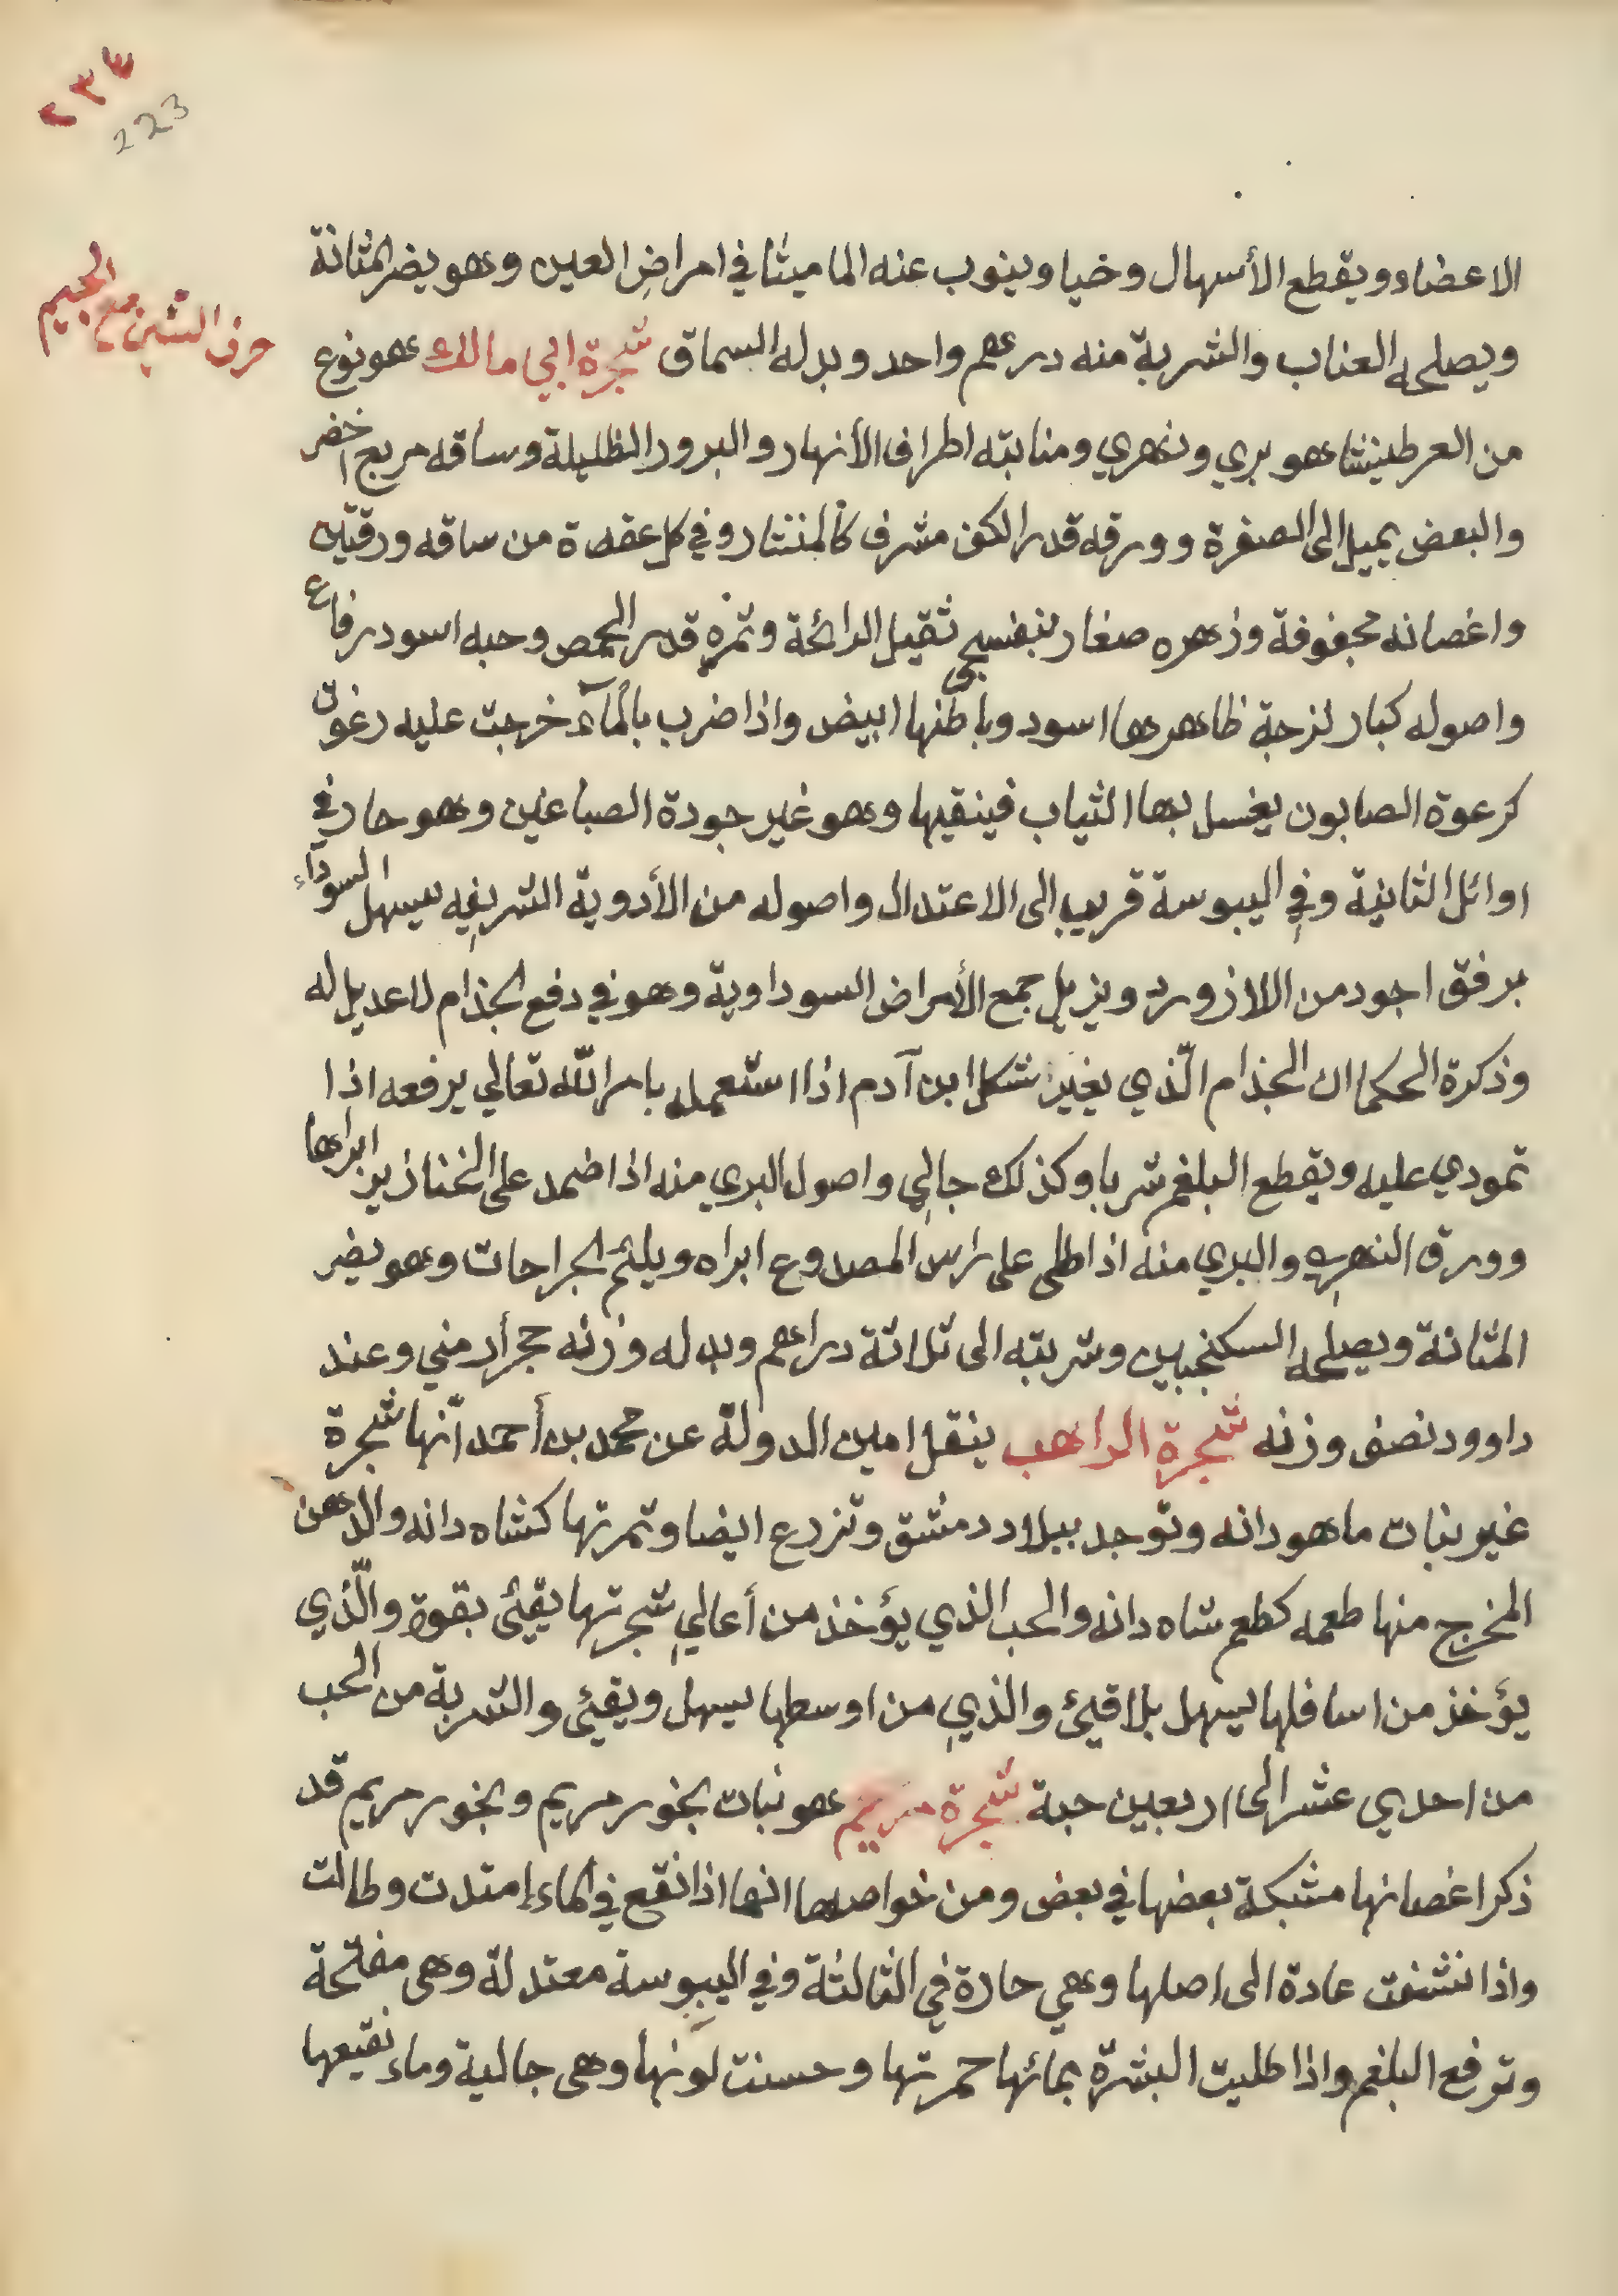 ٢٣٣
223
حرف الشين مع الجيم
الاعضاء ويقطع الأسهال وخيا وينوب عنه الماميثا في امراض العين وهو يضر المثانة
ويصلحه العناب والشربة منه درهم واحد وبدله السماق شجرة ابي مالك هو نوع
من العرطنيثا هو بري ونهري ومنابته اطراف الأنهار والبرور الظليلة وساقه مربع اخضر
والبعض يميل الى الصفرة وورقه قدر الكف مشرف كالمنشار وفي كل عقدة من ساقه ورقتين
واغصانه مجفوفة وزهره صغار بنفسجي ثقيل الرائحة وثمره قدر الحمص وحبه اسود رفاع
واصوله كبار لزجة ظاهرها اسود وباطنها ابيض واذا ضرب بالمآء خرجت عليه رغوة
كرعوة الصابون يغسل بها الثياب فينقيها وهو غير جودة الصباغين وهو حار في
اوائل الثانية وفي اليبوسة قريب الى الاعتدال واصوله من الأدوية الشريفه يسهل السودآء
برفق اجود من اللازورد ويزيل جمع الأمراض السوداوية وهو في دفع الجذام لا عديل له
وذكرة الحكما ان الجذام الّذي يغير شكل ابن آدم اذا استعمله بامر الله تعالي يرفعه اذا
تمودي عليه ويقطع البلغم شربا وكذلك جالي واصول البري منه اذا ضمد على الخنازير ابراها
وورق النهري والبري منه اذا طلى على راس المصدوع ابراه ويلئم الجراحات وهو يضر
المثانة ويصلحه السكنجبين وشربته الى ثلاثة دراهم وبدله وزنه حجر أرمني وعند
داوود نصف وزنه شجرة الراهب ينقل امين الدولة عن محمد بن أحمد انّها شجرة
غير نبات ماهودانه وتوجد ببلاد دمشق وتزرع ايضا وثمرتها كشاه دانه والدهن
المخرج منها طعمه كطعم شاه دانه والحب الذي يؤخذ من أعالي شجرتها يقيئ بقوة والّذي
يؤخذ من اسافلها ليسهل بلا قيئ والذي من اوسطها يسهل ويقيئ والشربة من الحب
من احدي عشر الى اربعين حبة شجرة مريم هو نبات بخور مريم وبخور مريم قد
ذكر اغصانها مشبكة بعضها في بعض ومن خواصها انها اذا نقع في الماء إمتدت وطالت
واذا نشفت عادة الى اصلها وهي حارة في الثالثة وفي اليبوسة معتدلة وهي مفتحة
وترفع البلغم واذا طليت البشرة بمائها حمرتها وحسنت لونها وهي جالية وماء نقيعها